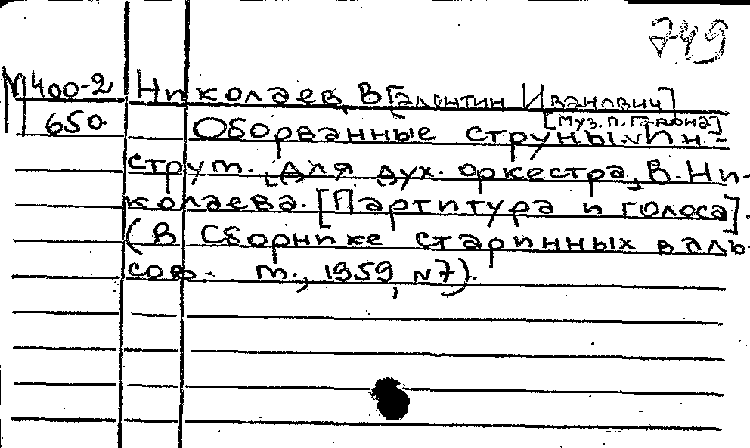 749
М400-2 Николаев, В[алентин Иванович]
650. Оборванные струны. Ин- [Муз. п. Гальбиа]
струм. для дух. оркестра, В. Ни-
колаева. [Партитура и голоса].
(В Сборнике старинных валь-
сов. М., 1959, №7).